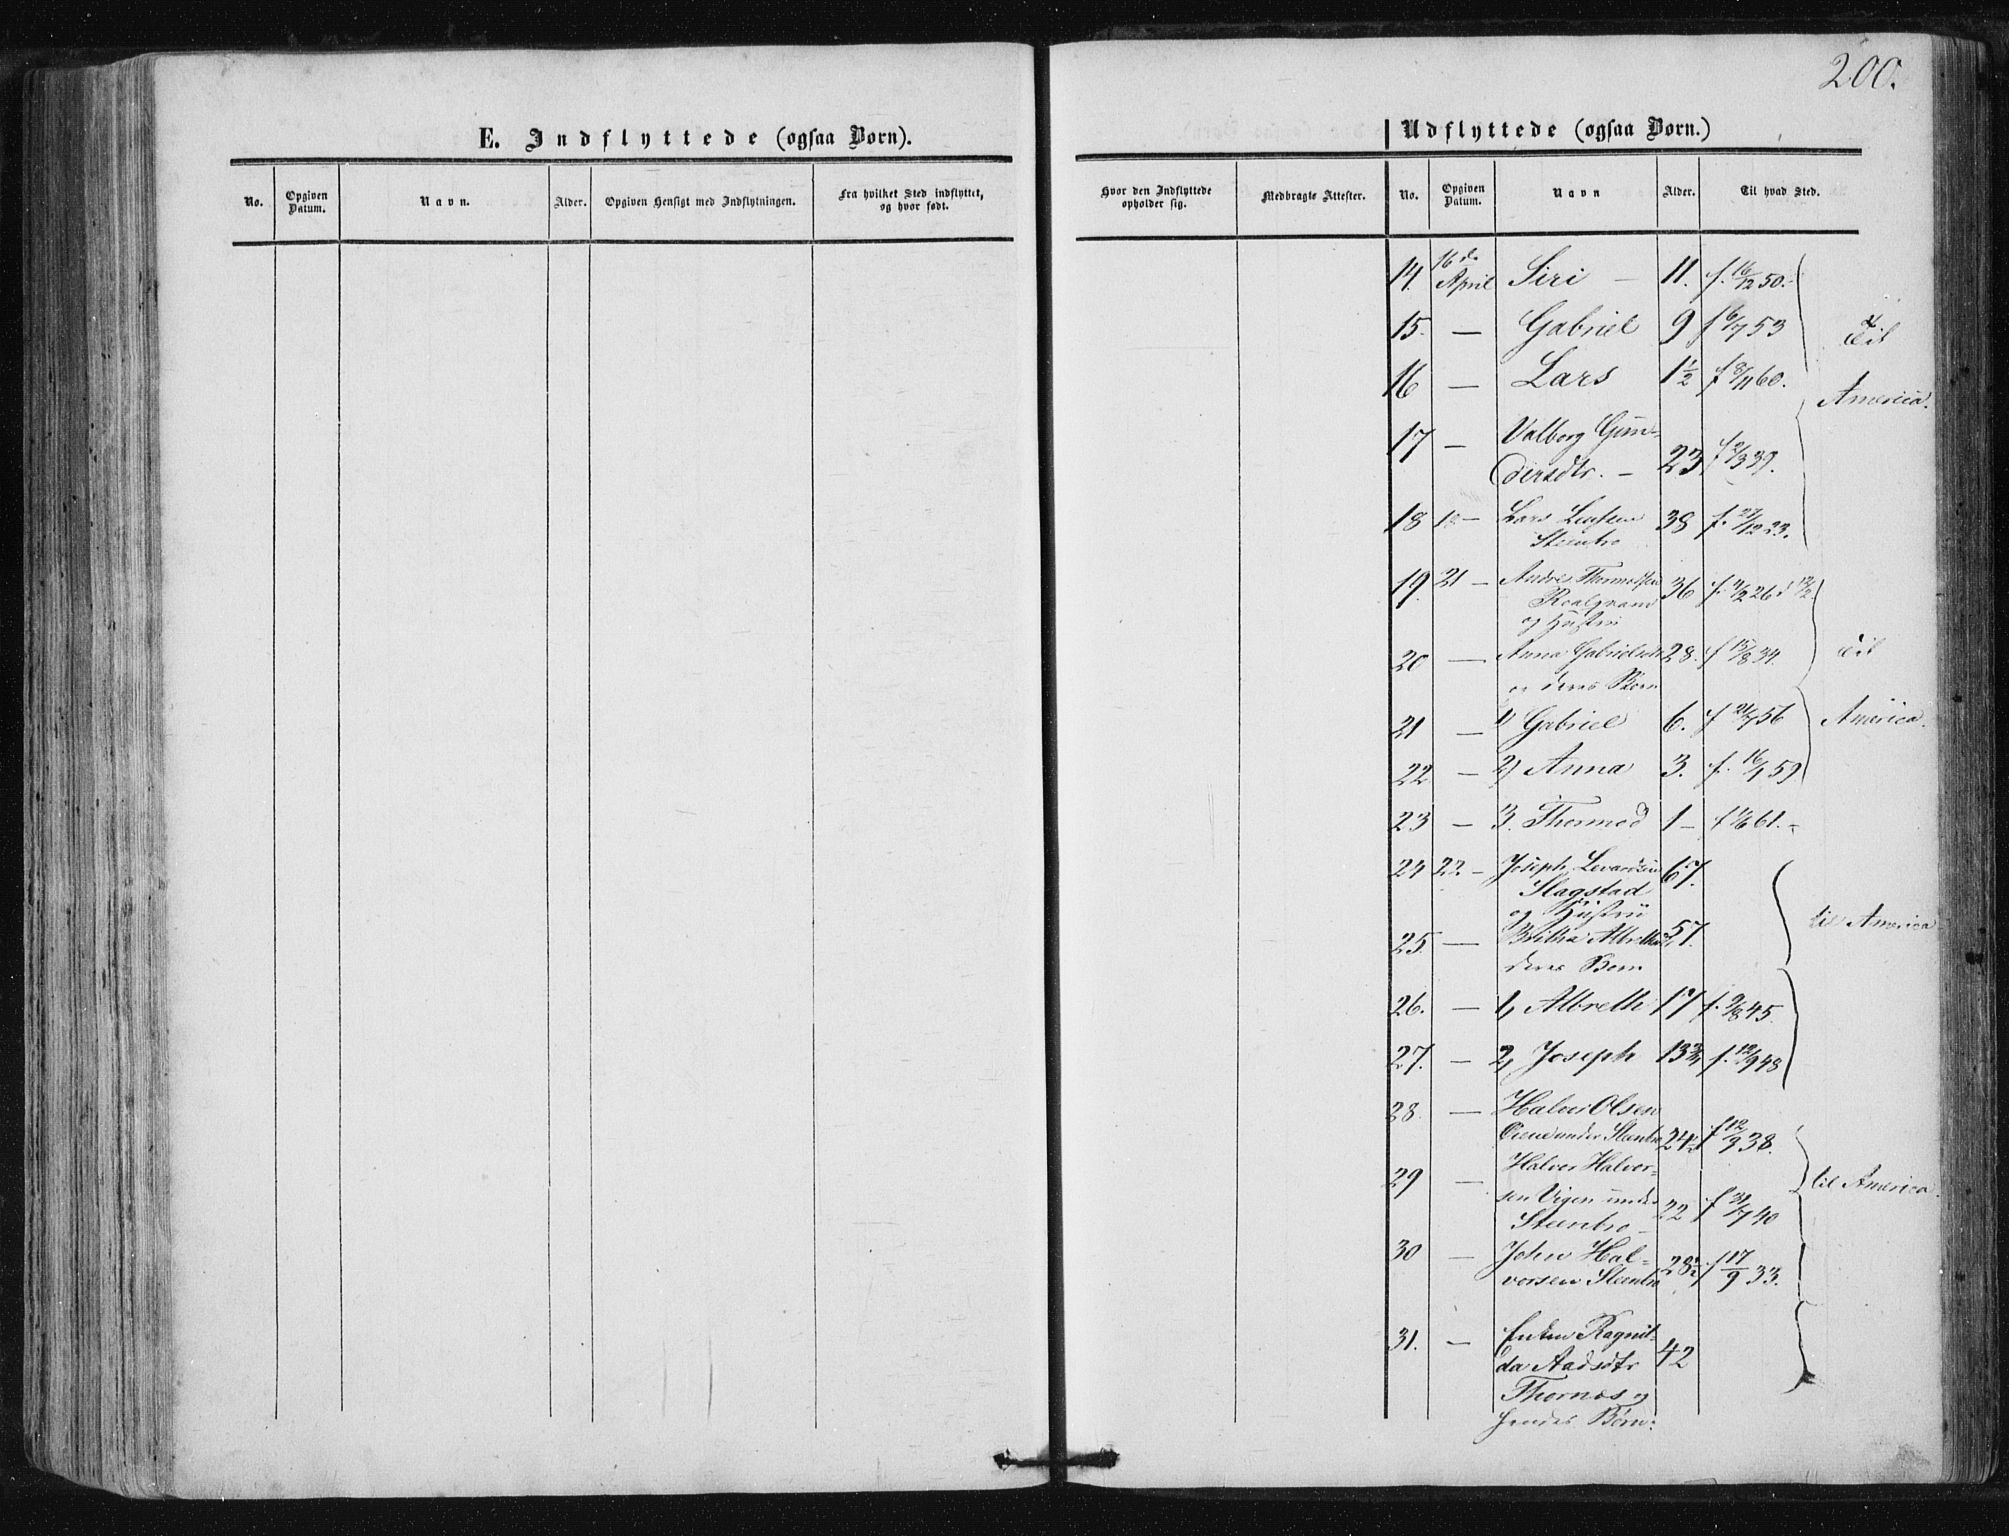 200.
E. Indflyttede (ogsaa Børn).
No. Opgiven Datum. Navn. Alder. Opgiven Hensigt med Indflytningen. Fra hvilket Sted indflyttet, og hvor født.
Udflyttede (ogsaa Børn.)
Hvor den Indflyttede opholder sig. Medbragte Attester. No. Opgiven Datum. Navn Alder. Til hvad Sted.
14. 16 d. April Siri — 11. f. 16/12 50.
15. — Gabriel 9 f 6/7 53 Til
16 — Lars 1 1/2 f 8/11 60. America.
17 — Valborg Gun-
dersdtr. — 23 f 2/3 39.
18 — Lars 38 f. 27/12 23.
Steenbro
19. 21 — Andres Thormodsen 36 f. 26
og Hustru
20 — Anna 28. f 15/8 34. Til
og deres Børn
21 — 1) Gabriel 6. f 21/7 56 America.
22 — 2) Anna 3. f. 16/1 59
23 — 3. Thormod 1 — 61.
24 22 — Joseph Levardsen 67.
Slagstad
og Hustru til America
25. — 57
deres Børn
26. — 1) Albreth 17 f. 9/8 45.
27. — 2) Joseph 13 3/4 f. 12/9 48
28. — Halvor Olsen
under Steenbro 24 f 12/9 38.
29 — Halvor Halvor-
sen Vigen under 22 f 31/7 40 til America.
Steenbro
30 — John Hal-
vorsen Steenbro 28 1/2 f 17/9 33.
31. — Enken Ragnil-
da Aadsdtr 42
Thornæs og
hendes Børn: